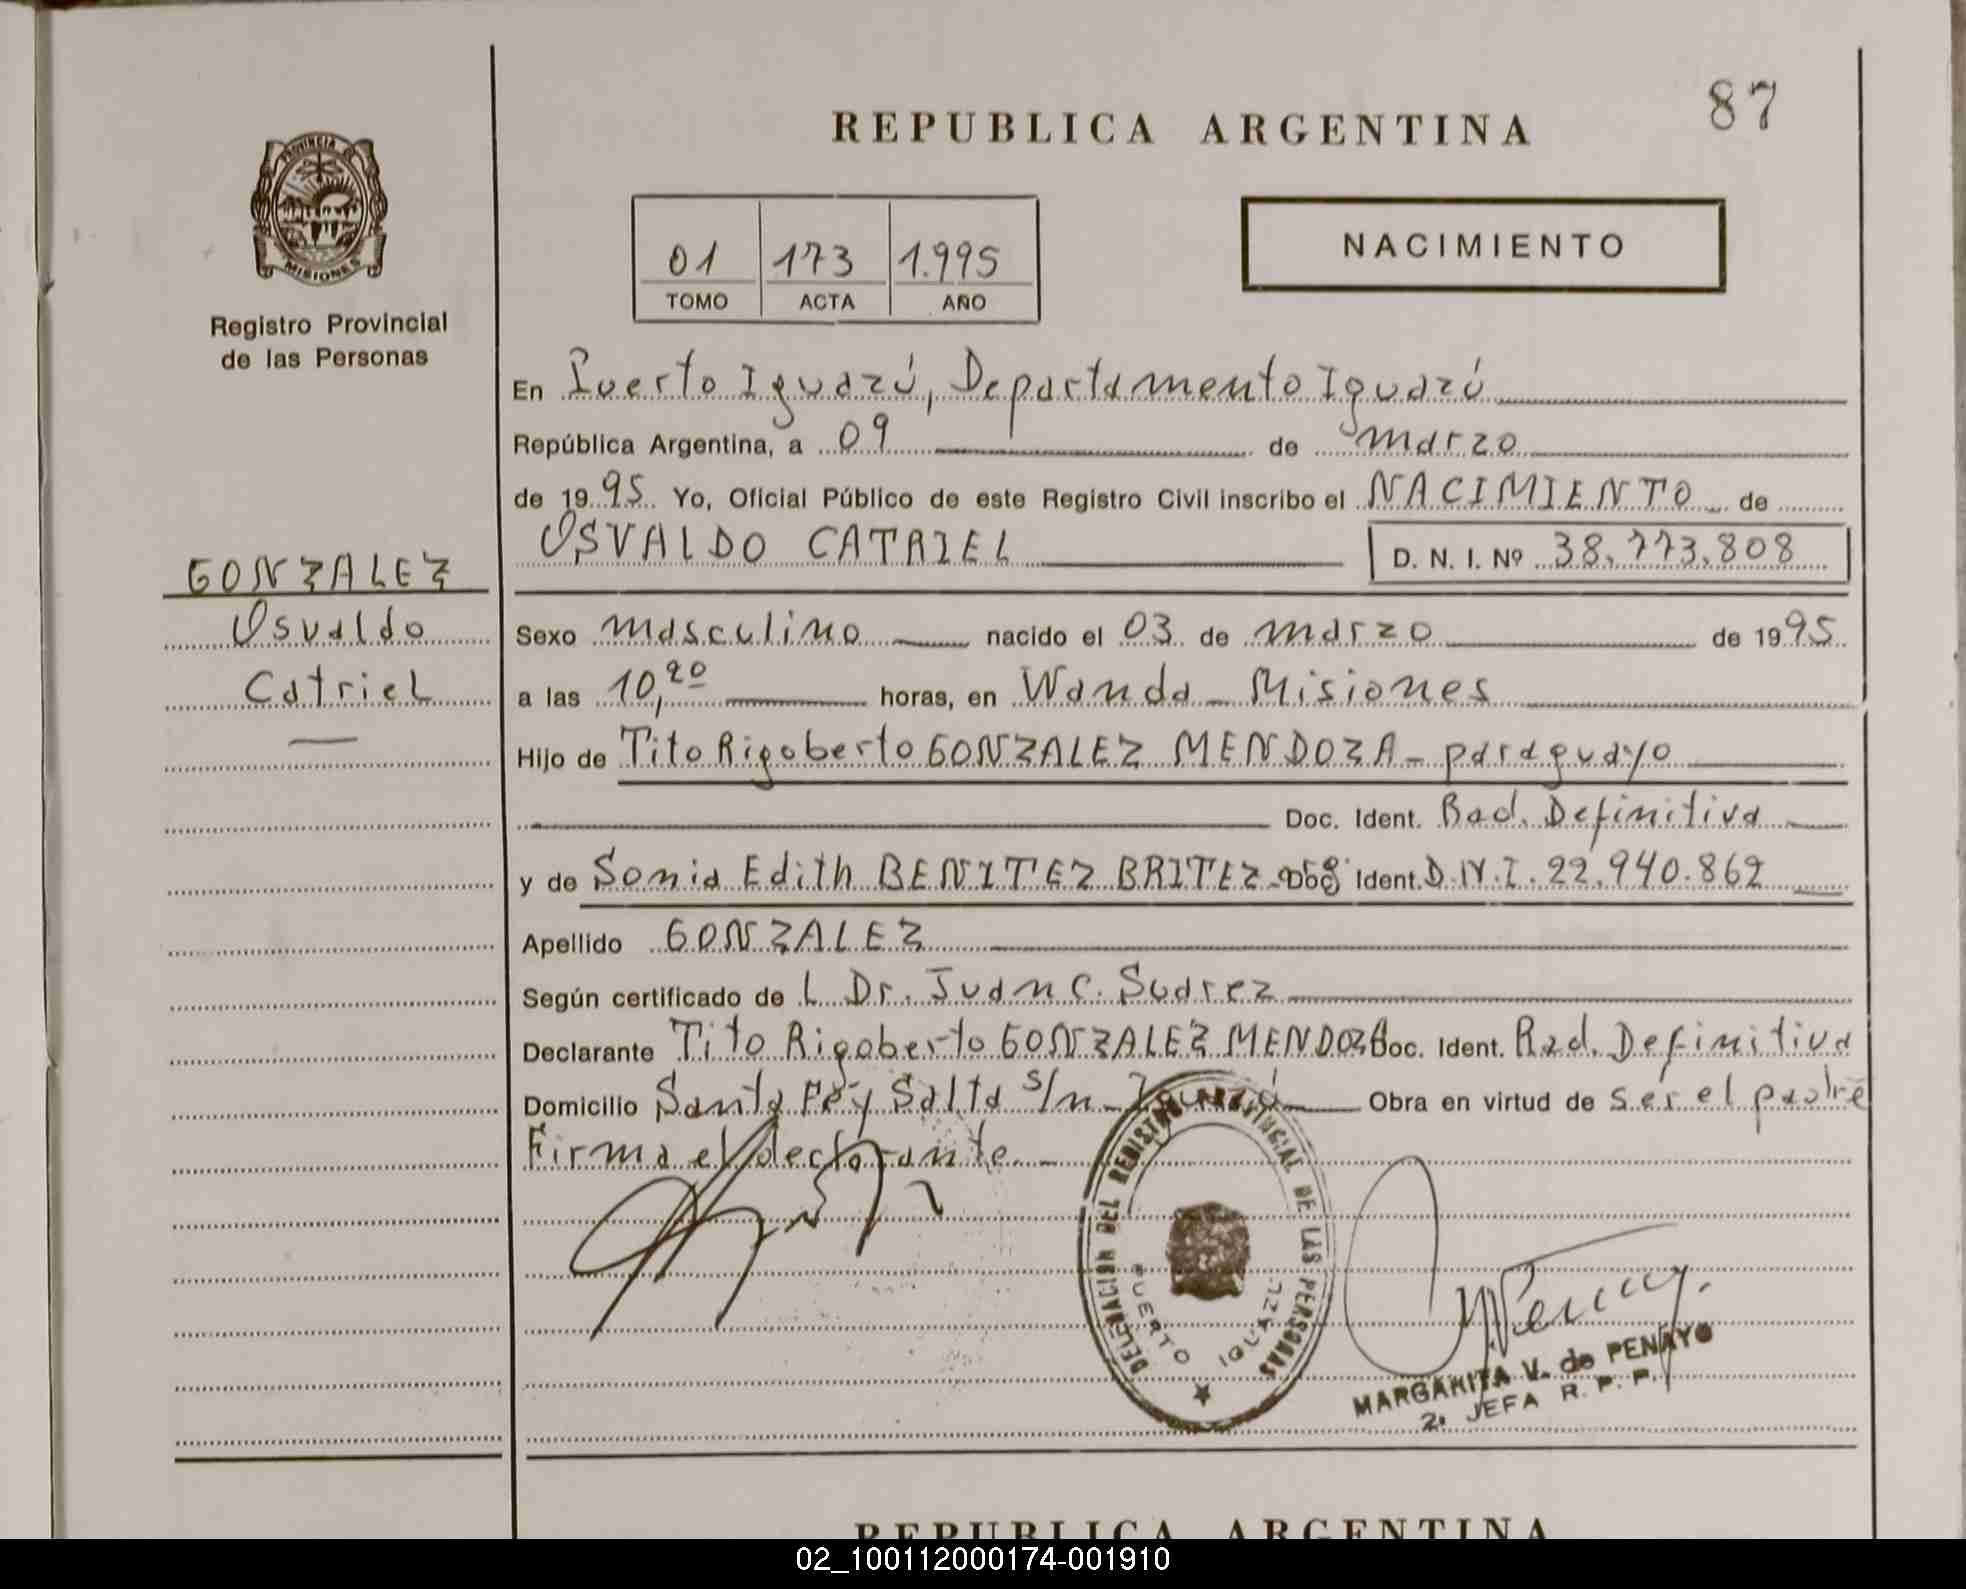 87
REPUBLICA ARGENTINA
PROVINCIA DE
MISIONES
Registro Provincial
de las Personas
01 173 1.995
TOMO ACTA AÑO
NACIMIENTO
En Puerto Iguazú, Departamento Iguazú
República Argentina, a 09 de marzo
de 1995 Yo, Oficial Público de este Registro Civil inscribo el NACIMIENTO de
OSVALDO CATRIEL D. N. I. Nº 38.773.808
GONZALEZ
Osvaldo
Catriel
Sexo masculino nacido el 03 de marzo de 1995
a las 10,20 horas, en Wanda - Misiones
Hijo de Tito Rigoberto GONZALEZ MENDOZA - paraguayo
Doc. Ident. Rad. Definitiva
y de Sonia Edith BENITEZ BRITEZ - Doc. Ident. D.N.I. 22.940.862
Apellido GONZALEZ
Según certificado de L Dr. Juan C. Suarez
Declarante Tito Rigoberto GONZALEZ MENDOZA Doc. Ident. Rad. Definitiva
Domicilio Santa Fé y Salta s/n - Iguazú Obra en virtud de ser el padre
Firma el declarante
DELEGACION DEL REGISTRO PROVINCIAL DE LAS PERSONAS
PUERTO IGUAZU
MARGARITA V. de PENAYO
2. JEFA R. P. P.
REPUBLICA ARGENTINA
02_100112000174-001910